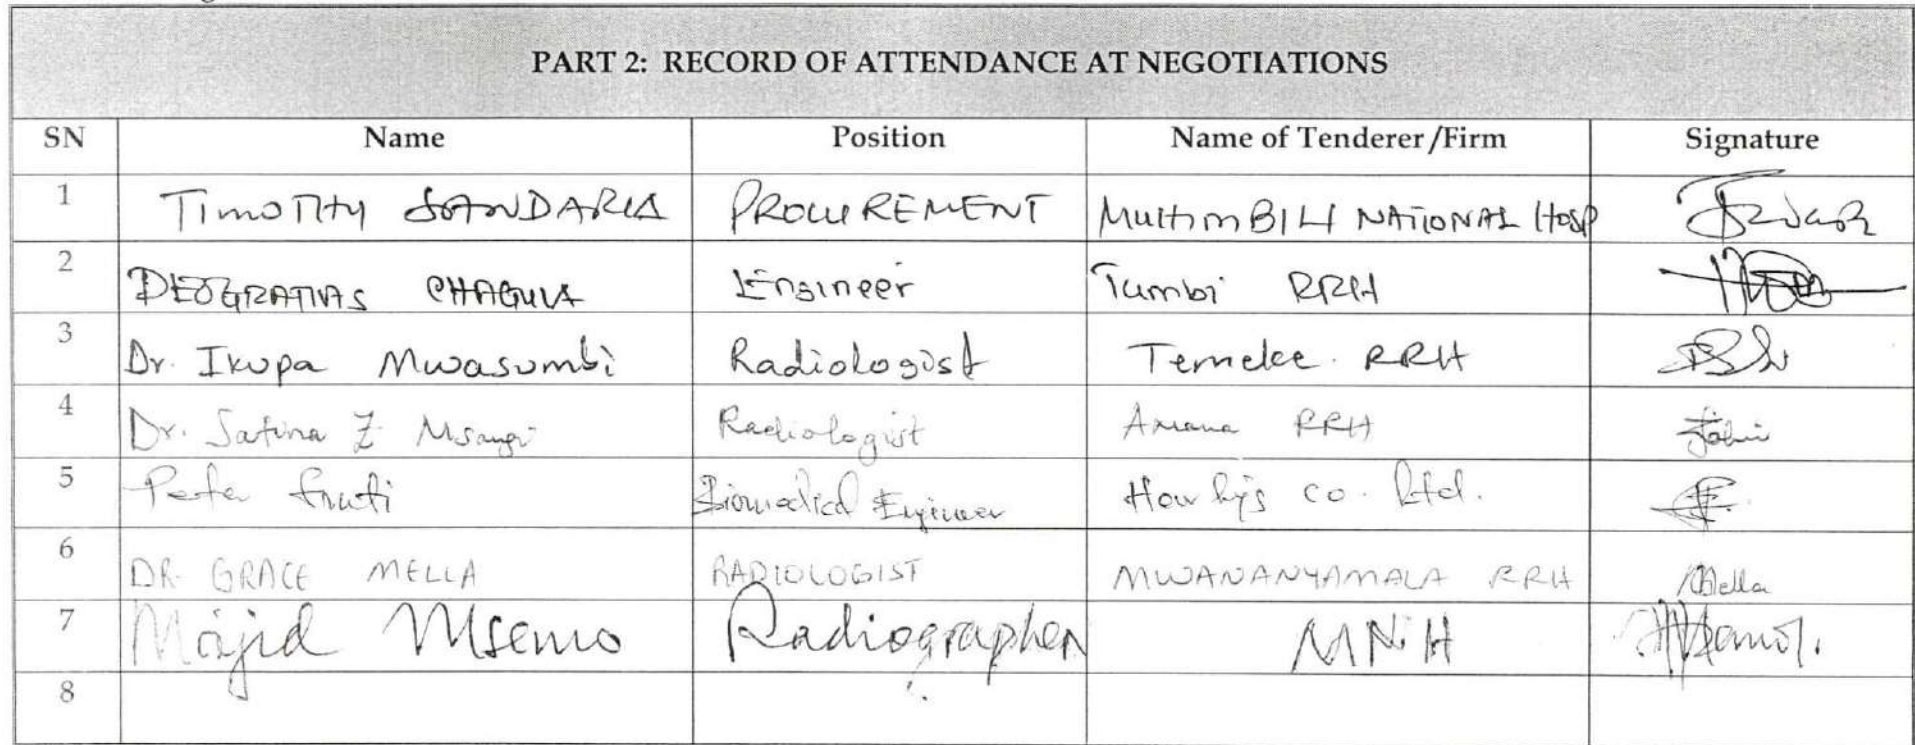 PART 2: RECORD OF ATTENDANCE AT NEGOTIATIONS
SN Name Position Name of Tenderer/Firm Signature
1 TIMOTHY PROCUREMENT MUHIMBILI NATIONAL HOSP
2 DEOGRATIAS CHAGULA Engineer Tumbi RRH
3 Dr. Ikupa Mwasumbi Radiologist Temeke RRH
4 Dr. Z Msangi Radiologist Amana RRH
5 Biomedical Engineer co. Ltd.
6 DR. GRACE MELLA RADIOLOGIST MWANANYAMALA RRH Mella
7 Majid Msemo Radiographer MNH
8